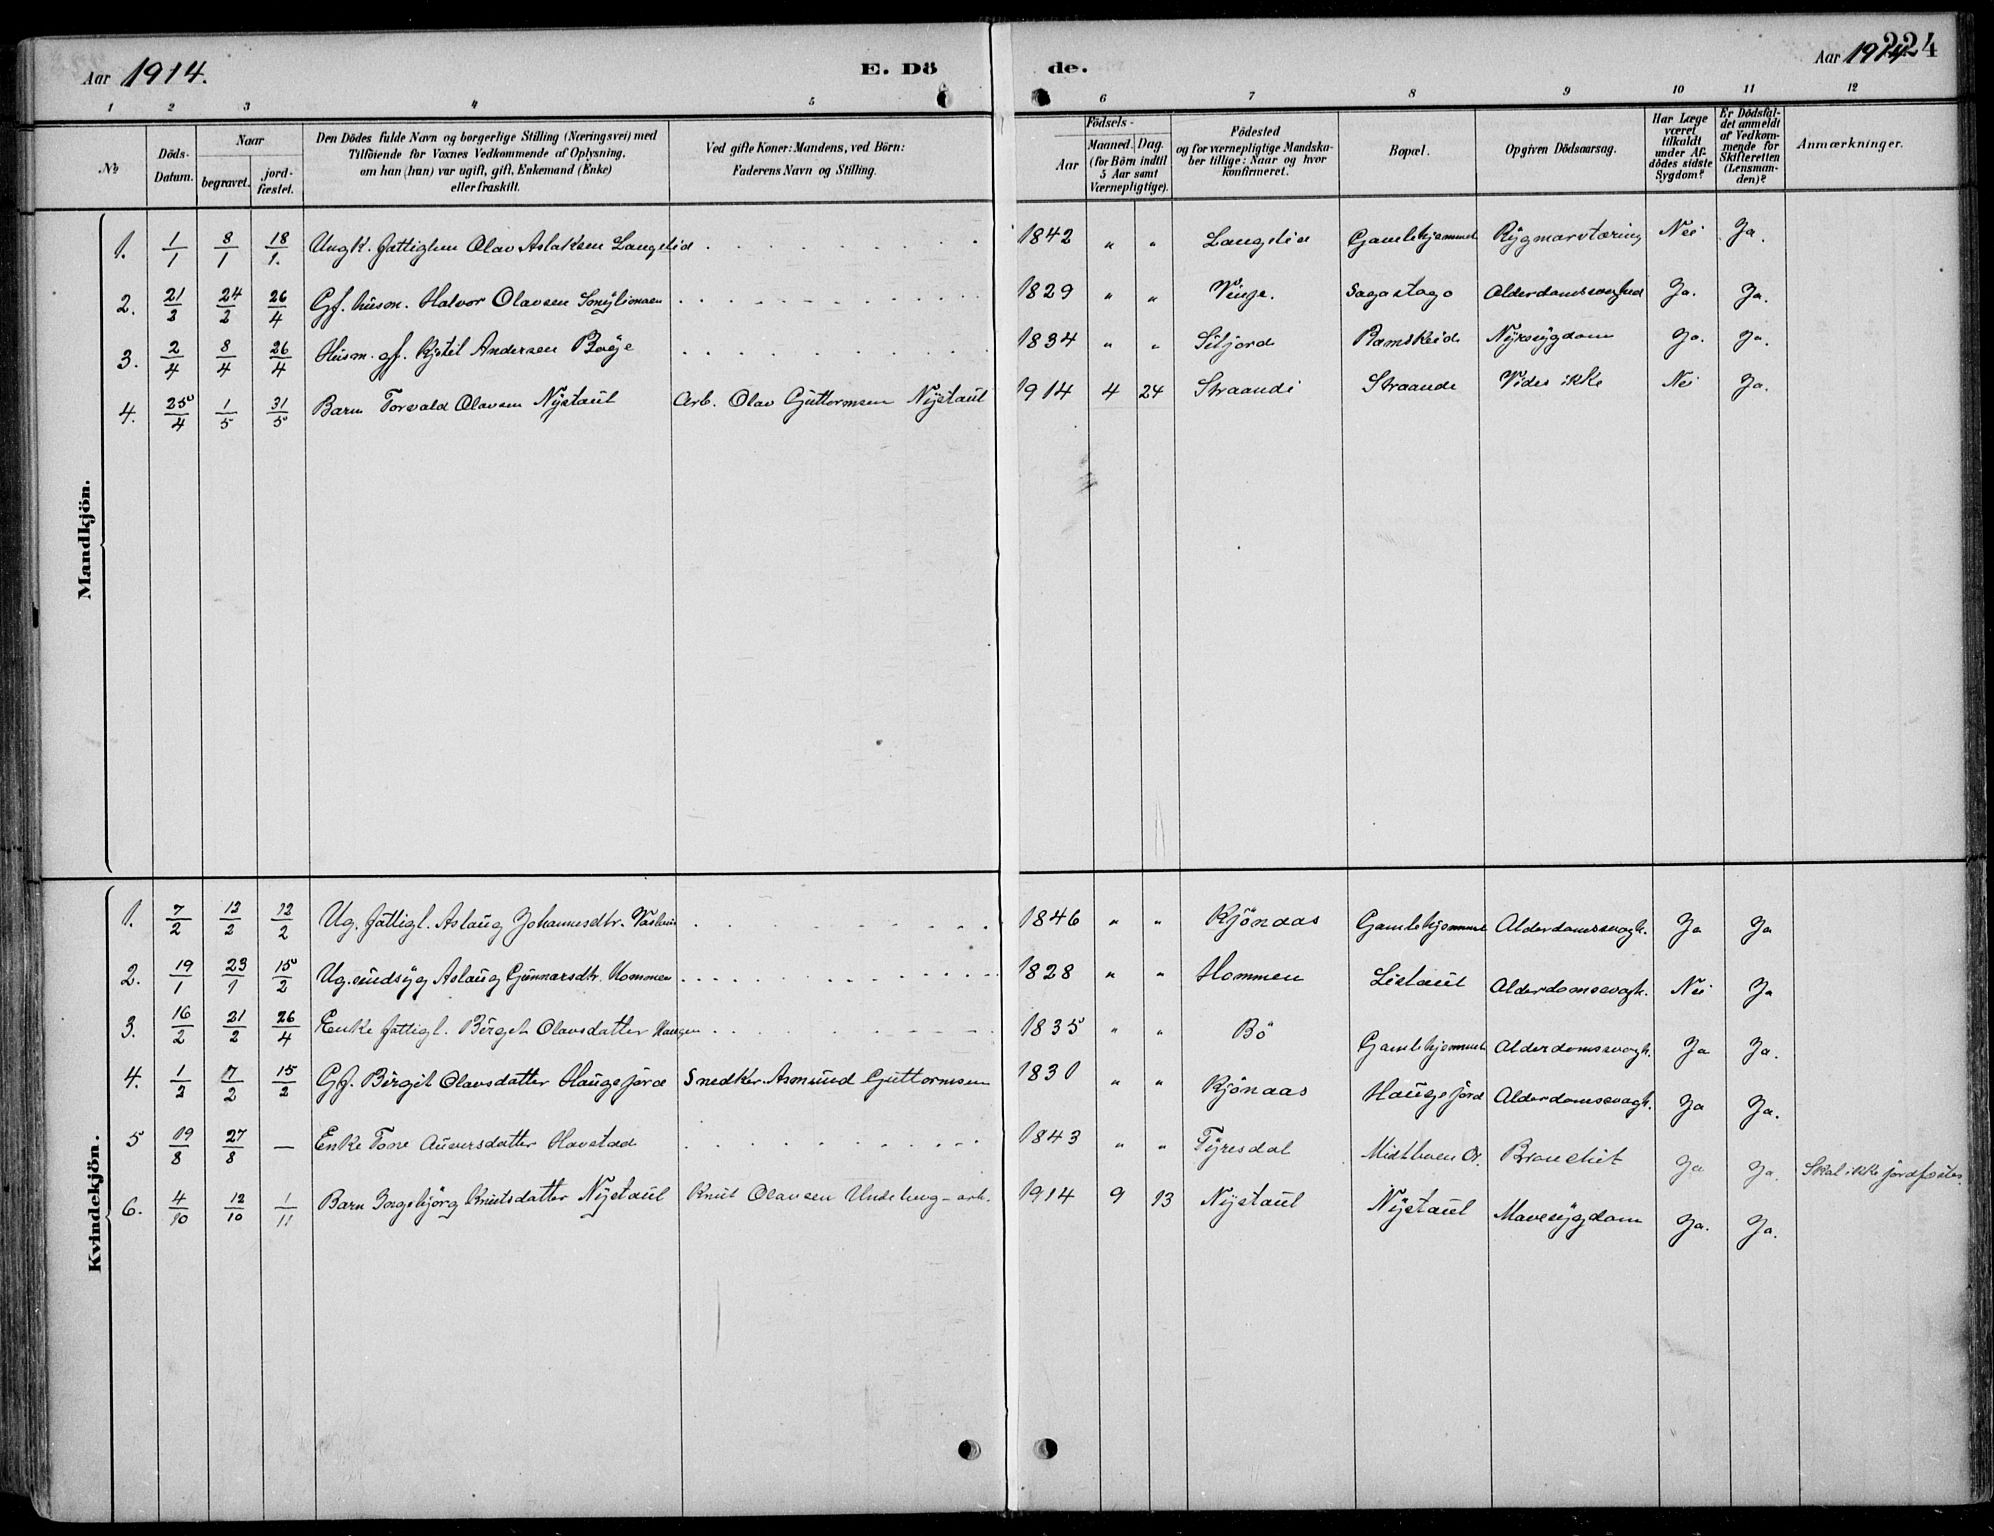 Aar 1914.
E. Dö
de.
Aar 1914
224
1 2 3 4 5 6 7 8 9 10 11 12
№
Döds-Datum.
Naar
begravet.
jord-fæstet.
Den Dödes fulde Navn og borgerlige Stilling (Næringsvei) med
Tilföiende for Voxnes Vedkommende af Oplysning,
om han (hun) var ugift, gift, Enkemand (Enke)
eller fraskilt.
Ved gifte Koner: Mandens, ved Börn:
Faderens Navn og Stilling.
Födsels-
Aar
Maaned. Dag.
(for Börn indtil
5 Aar samt
Værnepligtige).
Födested
og for værnepligtige Mandska-
ber tillige: Naar og hvor
konfirmeret.
Bopæl.
Opgiven Dödsaarsag.
Har Læge
været
tilkaldt
under Af-
dödes sidste
Sygdom?
Er Dödsfal-
det anmeldt
af Vedkom-
mende for
Skifteretten
(Lensman-
den)?
Anmærkninger.
Mandkjön.
1. 1/1 8/1 18/1. Ungk. fattiglem Olav Aslaksen Langelid 1842 " " Langelid Gamlehjemmet Rygmarvtæring Nei Ja.
2. 21/2 24/2 26/4 Gf. husm. Halvor Olavsen 1829 " " Vinje. Sagastago Alderdomssvaghed Ja. Ja.
3. 2/4 8/4 26/4 Husm. gf. Kjetil Andersen Böge 1834 " " Siljord Ramskeid Nyresygdom Ja. Ja.
4. 25/4 1/5 31/5 Barn Torvald Olavsen Nystaul Arb. Olav Guttormsen Nystaul 1914 4 24 Straande Straande Vides ikke Nei Ja.
Kvindekjön.
1. 7/2 12/2 12/2 Ug. fattigl. Aslaug Johannesdtr. 1846 " " Kjönaas Gamlehjemmet Alderdomssvagh. Ja Ja
2. 19/1 23/1 15/2 Ug. sindsyg Aslaug Gunnarsdtr. Hommen 1828 " " Hommen Listaul Alderdomssvagh. Nei Ja
3. 16/2 21/2 26/4 Enke fattigl. Birgit Olavsdatter Haugen 1835 " " Bö Gamlehjemmet Alderdomssvagh. Ja Ja.
4. 1/2 7/2 15/2 Gf. Birgit Olavsdatter Haugejord Snedker Asmund Guttormsen 1831 " " Kjönaas Haugejord Alderdomssvagh. Ja Ja.
5 19/8 27/8 — Enke Tone Auversdatter Havstad 1843 " " Tyresdal Midtboen Bronchit Ja Ja. Skal ikke jordfæstes
6. 4/10 12/10 1/11 Barn Ingebjörg Knutsdatter Nystaul Knut Olavsen Undelug - arb. 1914 9 13 Nystaul Nystaul Mavesygdom Ja. Ja.